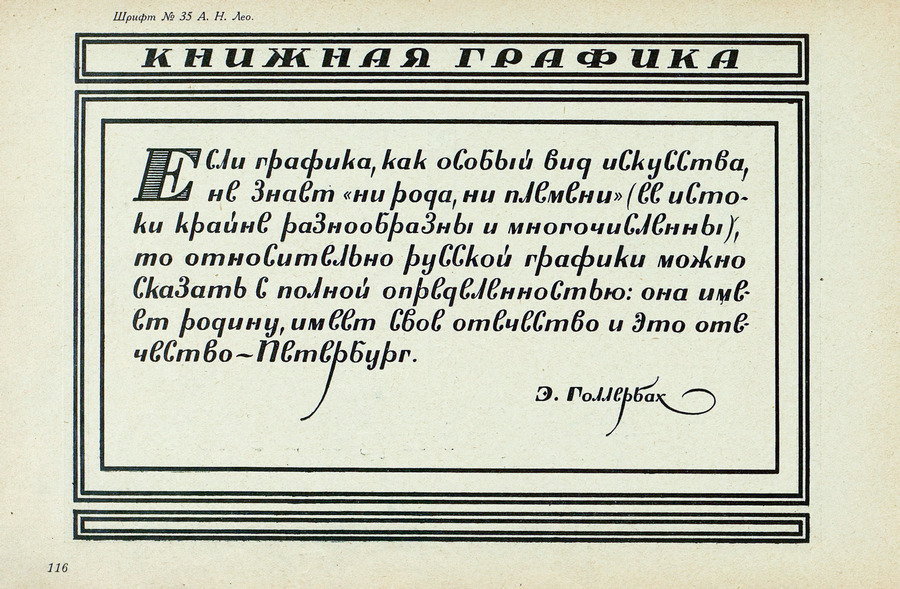 Шрифт № 35 А. Н. Лео.
КНИЖНАЯ ГРАФИКА
Если графика, как особый вид искусства,
не знает «ни рода, ни племени» (ее исто-
ки крайне разнообразны и многочисленны),
то относительно русской графики можно
сказать с полной определенностью: она име-
ет родину, имеет свое отечество и это оте-
чество – Петербург.
Э. Голлербах
116